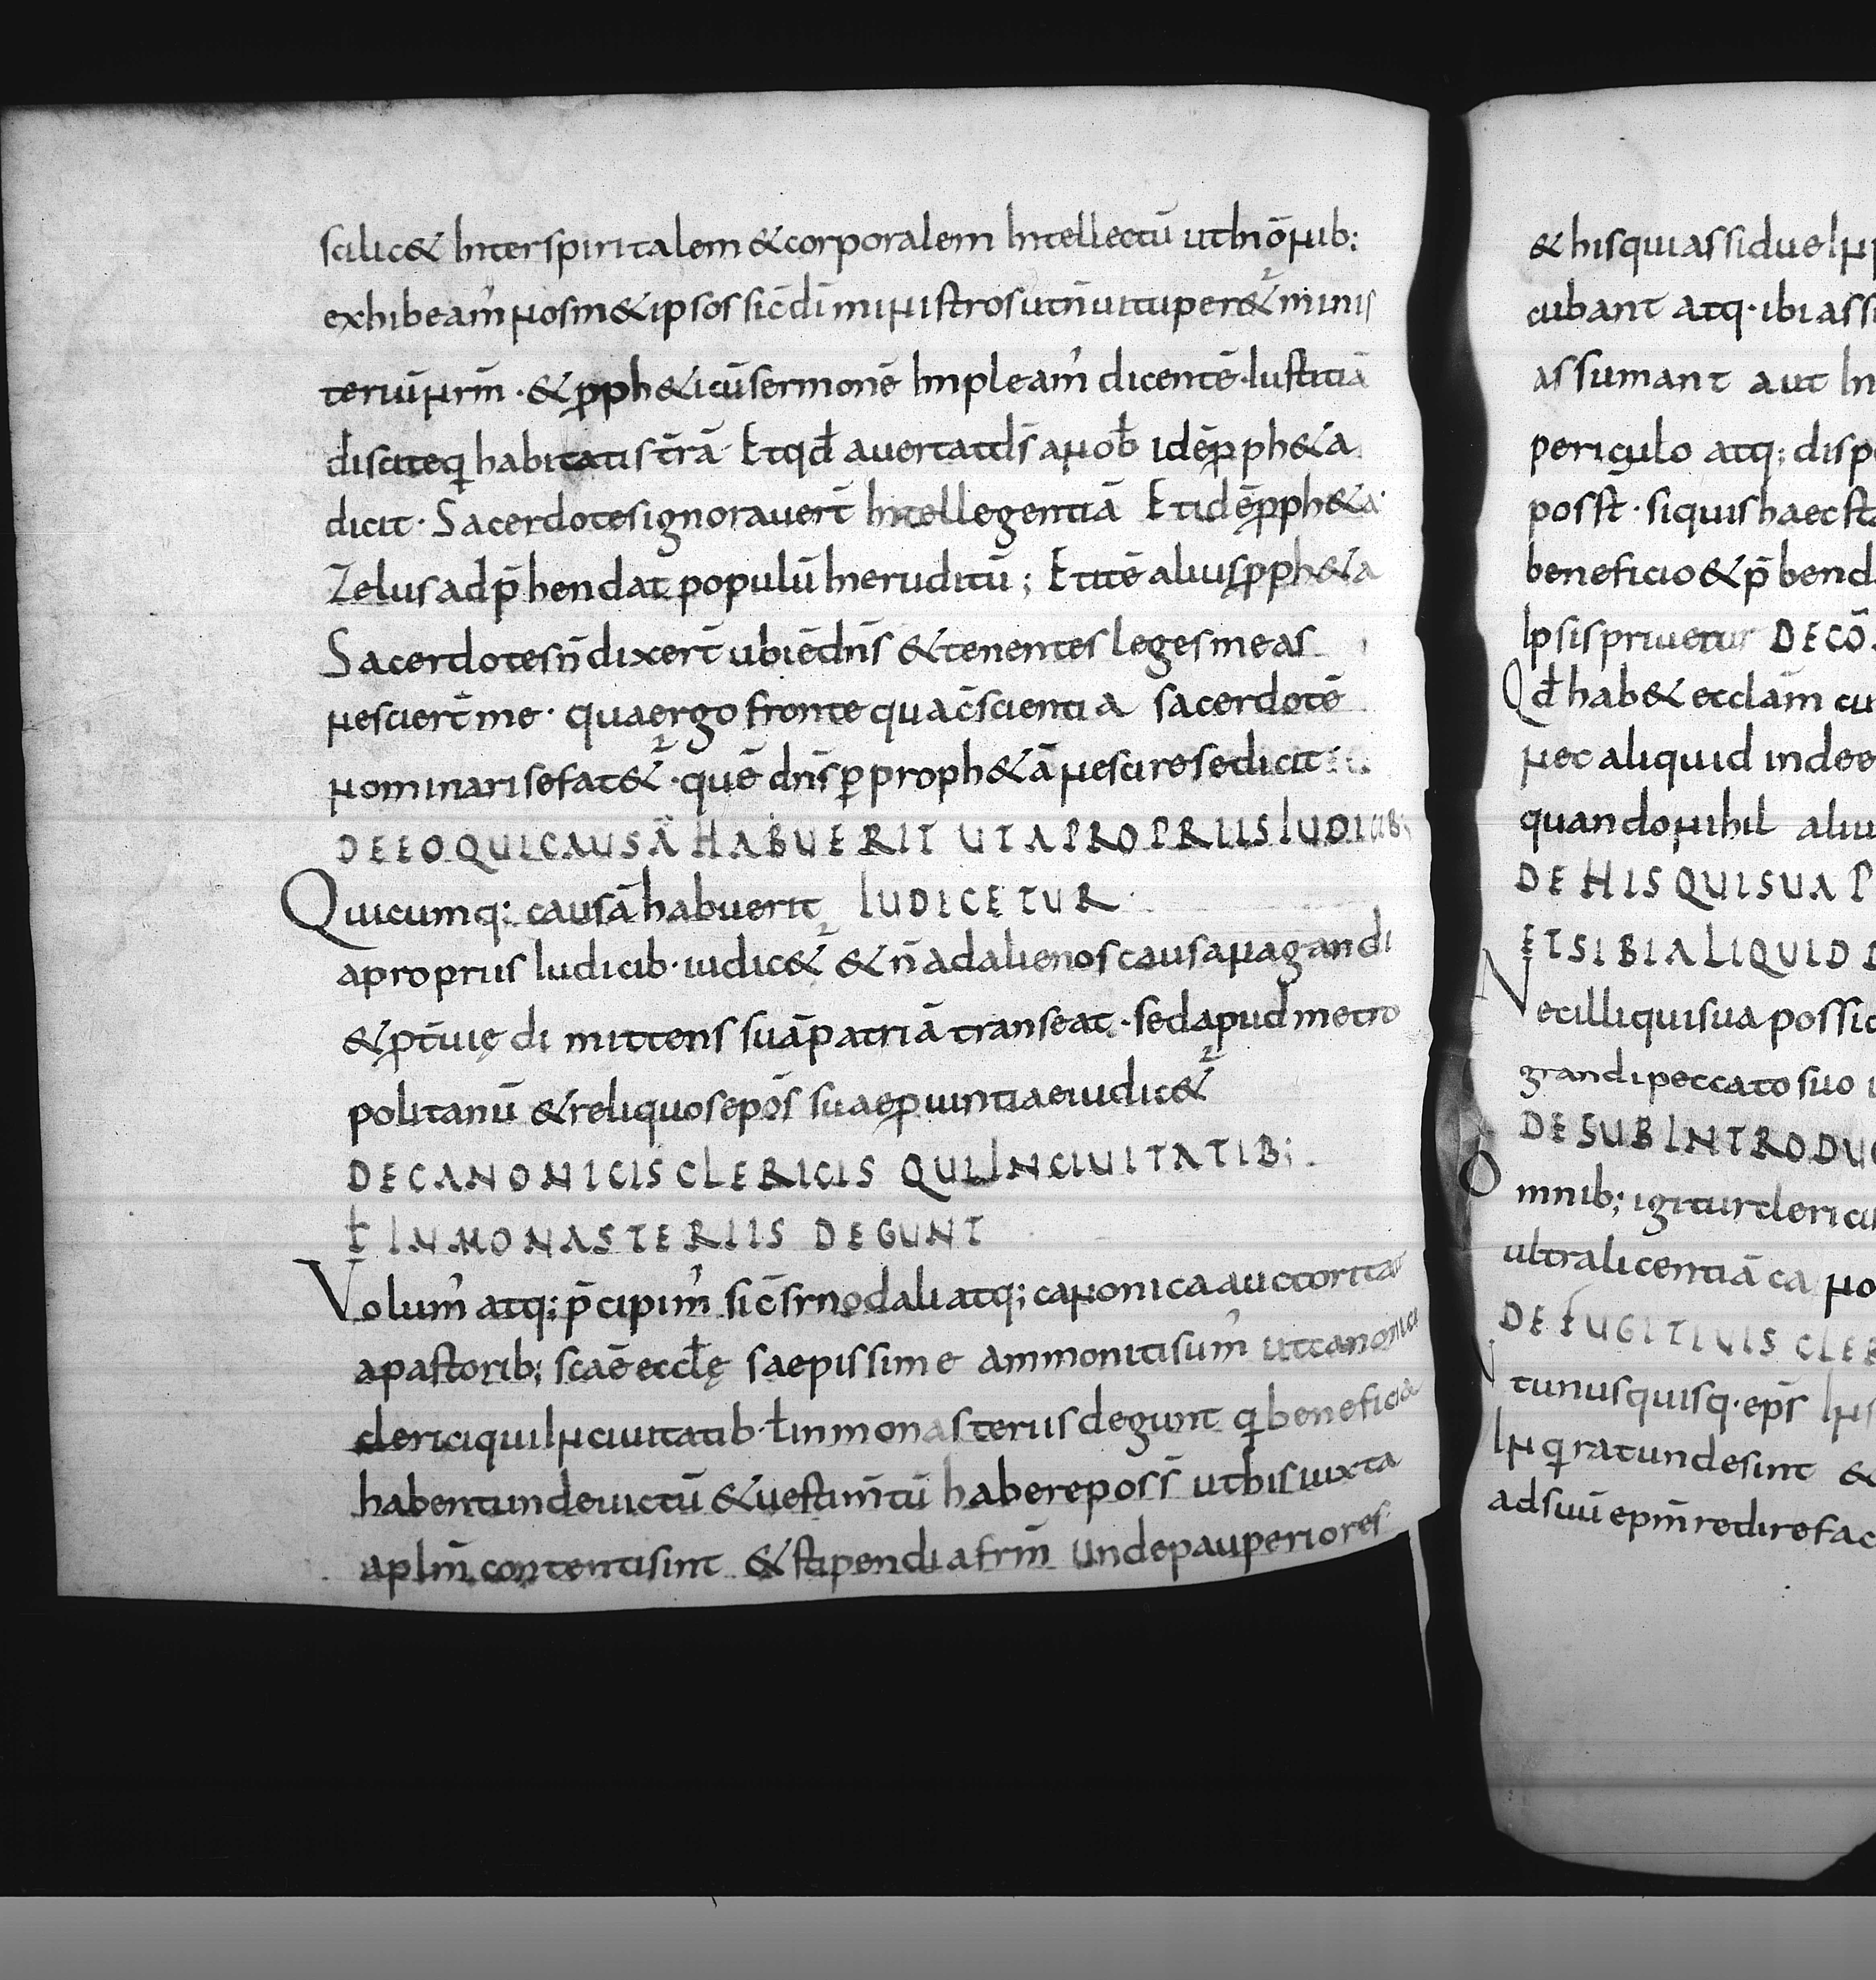 scilic& Inter spiritalem &corporalem Intellectū ut In ōnib;
exhibeam' nosm&ipsos sic̄ di ministros ut n̄ uituper&ur minis
teriū nr̄m · & pph&icū sermonē Impleam' dicentē · Iustitiā
discite q habitatis tr̄ā · Et qđ auertat ds̄ a nob̄ idē pph&a
dicit · Sacerdotes ignorauert̄ Intellegentiā Et idē pph&a ·
Zelus adp̄hendat populū Ineruditū ; Et itē alius pph&a
Sacerdotes n̄ dixert̄ ubi ē dn̄s & tenentes leges meas
nesciert̄ me · qua ergo fronte qua c̄scientia sacerdotē
nominari se fat&ur · quē dn̄s p proph&ā nescire se dicit ·
DE EO QUI CAUSĀ HABUERIT UT A PROPRIIS IUDICIB;
Quicumq; causā habuerit IUDICETUR ·
a propriis Iudicib· iudic&ur & n̄ ad alienos causa uagandi
& pt̄uię dimittens suā patriā transeat · sed apud metro
politanū & reliquos epōs suae puintiae iudic&ur
DE CANONICIS CLERICIS QUI IN CIUITATIB; ·
ł IN MONASTERIIS DEGUNT
Volum' atq; p̄cipim' sic̄ sinodali atq; canonica auctoritat
a pastorib; sc̄ae eccłę saepissime ammoniti sum' ut canonici
clerici qui In ciuitatib· ł in monasteriis degunt q beneficia
habent unde uictū & uestim̄tū habere poss̄ ut his iuxta
aplm̄ contenti sint & stipendia frm̄ unde pauperiores
& his qui assidue In
cubant atq· ibi assi
assumant aut In
periculo atq; disp
posst̄ · si quis haec sta
beneficio & p̄bend
Ipsis priuetur DE CO
Qđ hab& ecclām cu
nec aliquid inde e
quando nihil aliu
DE HIS QUI SUA P
ET SIBI ALIQUID D
Nec illi qui sua possid
grandi peccato suo
DE SUBINTRODUC
Omnib; igitur clerici
ultra licentiā cano
DE FUGITIUIS CLER
Ut unusquisq· eps̄ In s
In q ratunde sint &
ad suū epm̄ redire fac